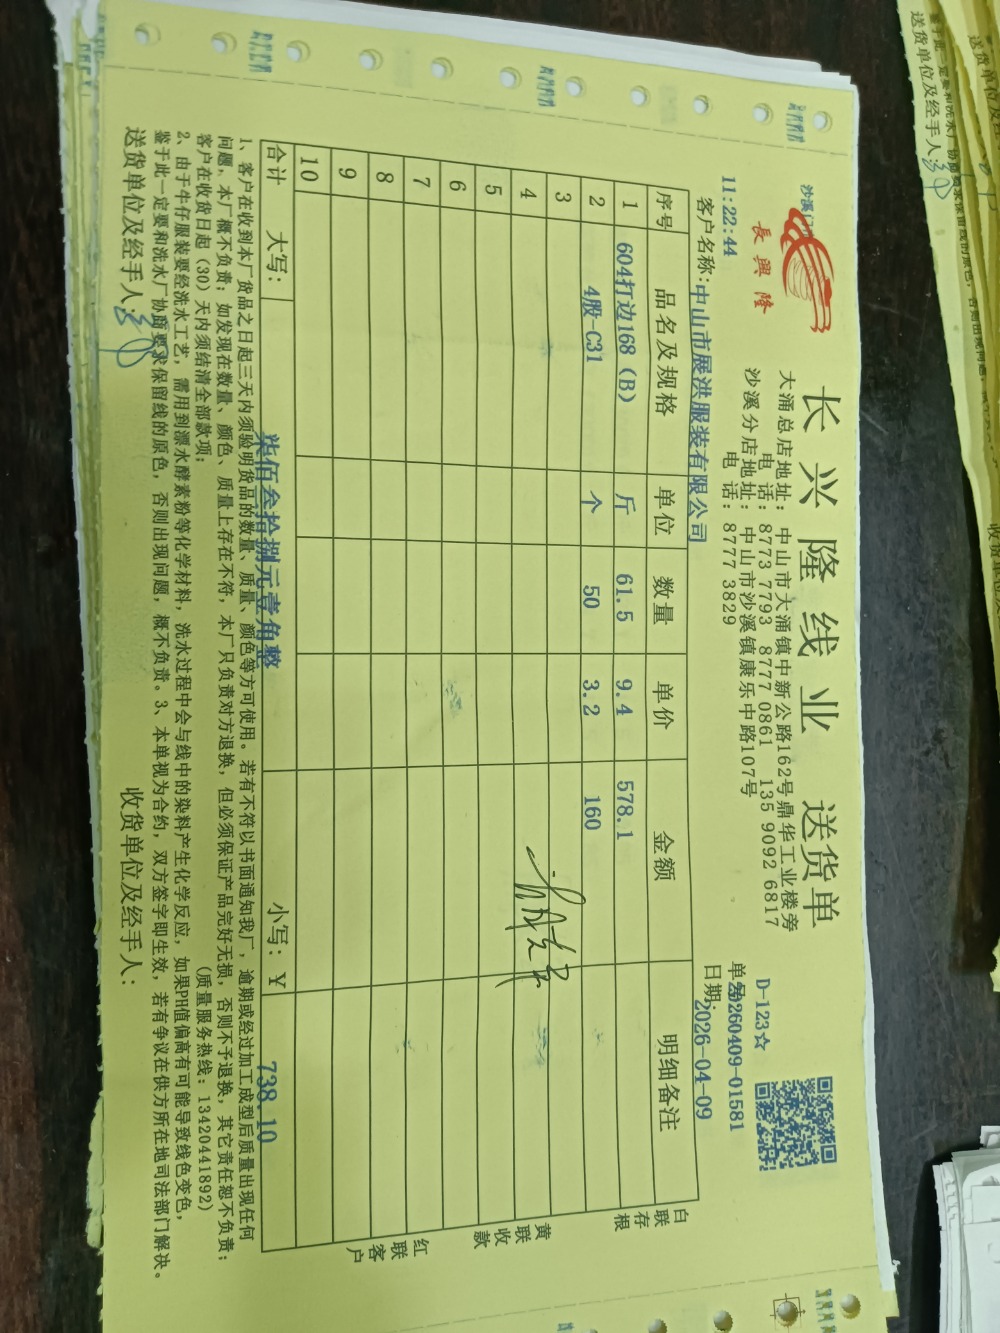 长兴隆线业 送货单
沙溪门
長興隆
大涌总店地址：中山市大涌镇中新公路162号鼎华工业楼旁
电话：8773 7793 8777 0861 135 9092 6817
沙溪分店地址：中山市沙溪镇康乐中路107号
电话：8777 3829
D-123☆
11:22:44
单号 20260409-01581
客户名称：中山市展洪服装有限公司
日期：2026-04-09
序号 品名及规格 单位 数量 单价 金额 明细备注
1 604打边168（B） 斤 61.5 9.4 578.1
2 4股-C31 个 50 3.2 160
3
4
5
6
7
8
9
10
合计 大写：柒佰叁拾捌元壹角整 小写：¥ 738.10
白联存根
黄联收款
红联客户
1、客户在收到本厂货品之日起三天内须验明货品的数量、质量、颜色等方可使用。若有不符以书面通知我厂，逾期或经过加工成型后质量出现任何
问题，本厂概不负责；如发现在数量、颜色、质量上存在不符，本厂只负责对方退换，但必须保证产品完好无损，否则不予退换，其它责任恕不负责；
客户在收货日起（30）天内须结清全部款项； （质量服务热线：13420441892）
2、由于牛仔服装要经洗水工艺，需用到漂水酵素粉等化学材料，洗水过程中会与线中的染料产生化学反应，如果PH值偏高有可能导致线色变色，
鉴于此一定要和洗水厂协商要求保留线的原色，否则出现问题，概不负责。3、本单视为合约，双方签字即生效，若有争议在供方所在地司法部门解决。
送货单位及经手人： 收货单位及经手人：
送货单位及经手人：